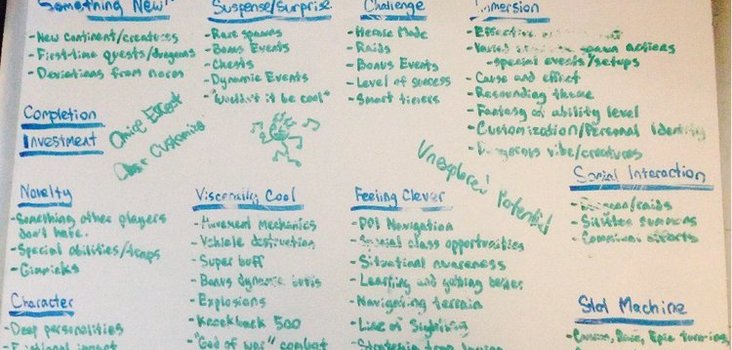 Something New
- New continent/creatures
- First-time quests/dungeons
- Deviations from norms
Suspense/Surprise
- Rare spawns
- Bonus Events
- Chests
- Dynamic Events
- "Wouldn't it be cool"
Challenge
- Heroic Mode
- Raids
- Bonus Events
- Level of success
- Smart timers
Immersion
- Effective
- Varied spawn actions
- special events/setups
- Cause and effect
- Resounding theme
- Fantasy of ability level
- Customization/Personal Identity
- Dangerous vibe/creatures
Completion
Investment
Unexplored Potential
Social Interaction
- /raids
- summons
- Communal efforts
Novelty
- Something other players
don't have.
- Special abilities/
- Gimmicks
Viscerally Cool
- Movement Mechanics
- Vehicle destruction
- Super buff
- Bonus dynamic buffs
- Explosions
- Knockback 500
- "God of war" combat
Feeling Clever
- POI Navigation
- Special class opportunities
- Situational awareness
- Learning and getting better
- Navigating terrain
- Line of Sighting
Character
- Deep personalities
Slot Machine